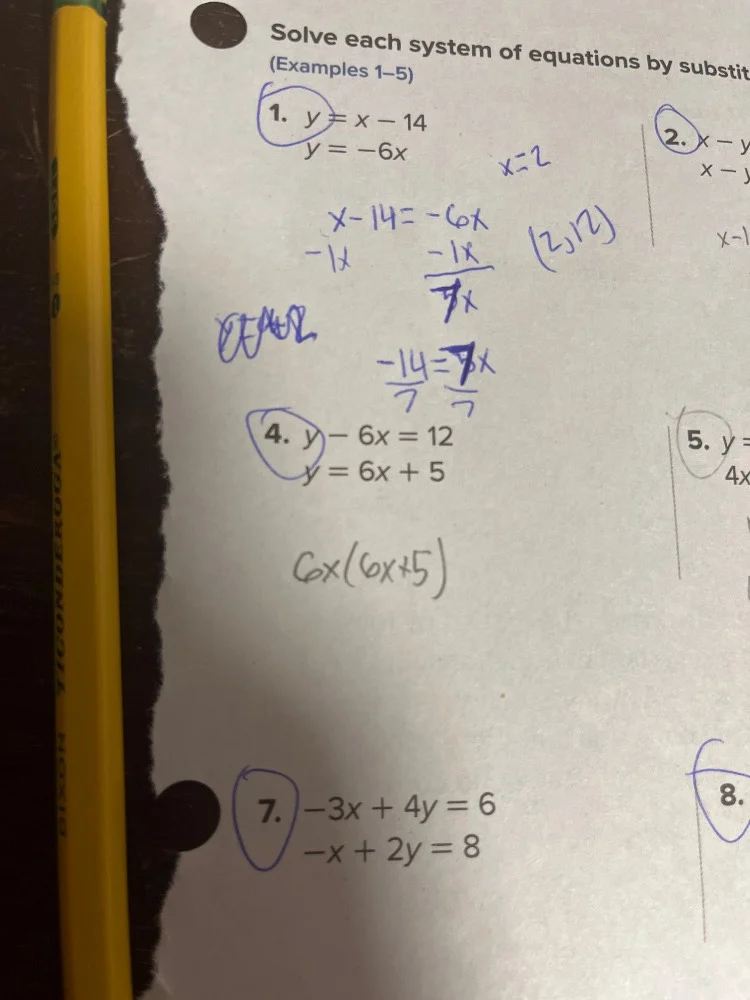 Solve each system of equations by substit
(Examples 1–5)
1. y = x − 14
y = −6x
x=2
x-14=-6x
-1x -1x
7x
(2,12)
-14=7x
7 7
2. x − y
x − y
x-1
4. y − 6x = 12
y = 6x + 5
6x(6x+5)
5. y =
4x
7. −3x + 4y = 6
−x + 2y = 8
8.
DIXON TICONDEROGA®